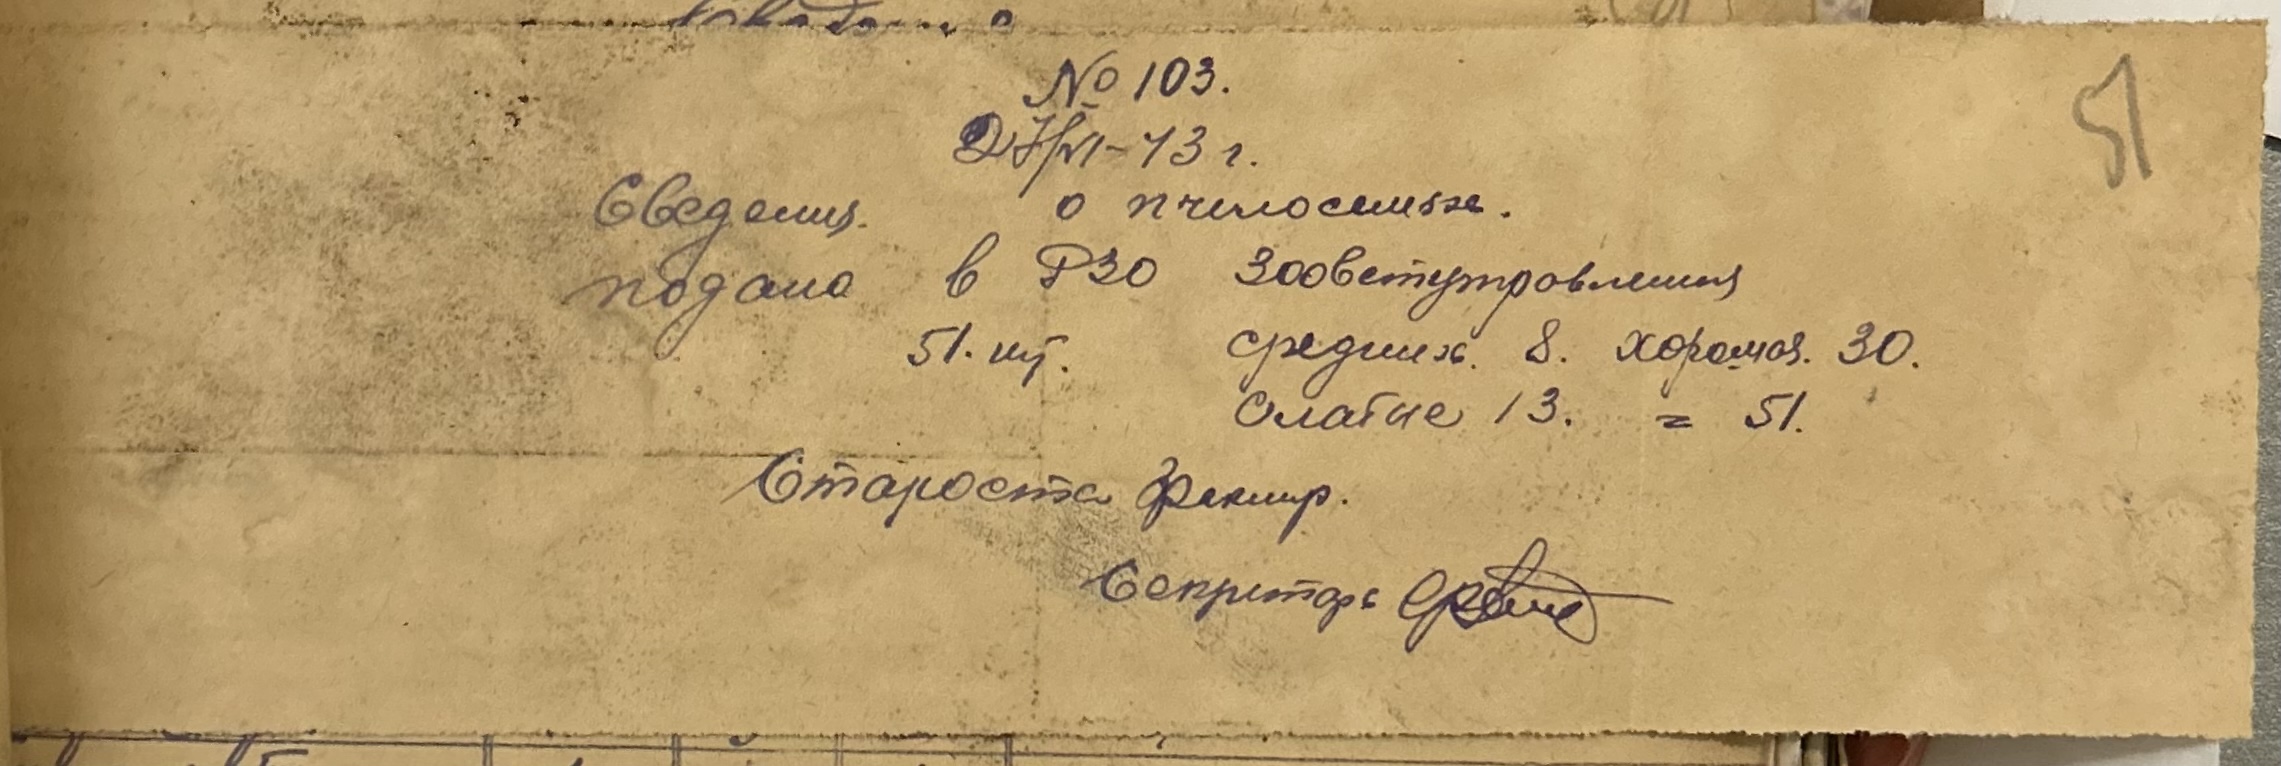 51
№ 103.
27/VI-43 г.
Сведения о пчелосемьях.
подано в РЗО Зооветуправления
51. шт. средних. 8. хороших. 30.
Слабые 13. = 51.
Староста
Секретарь